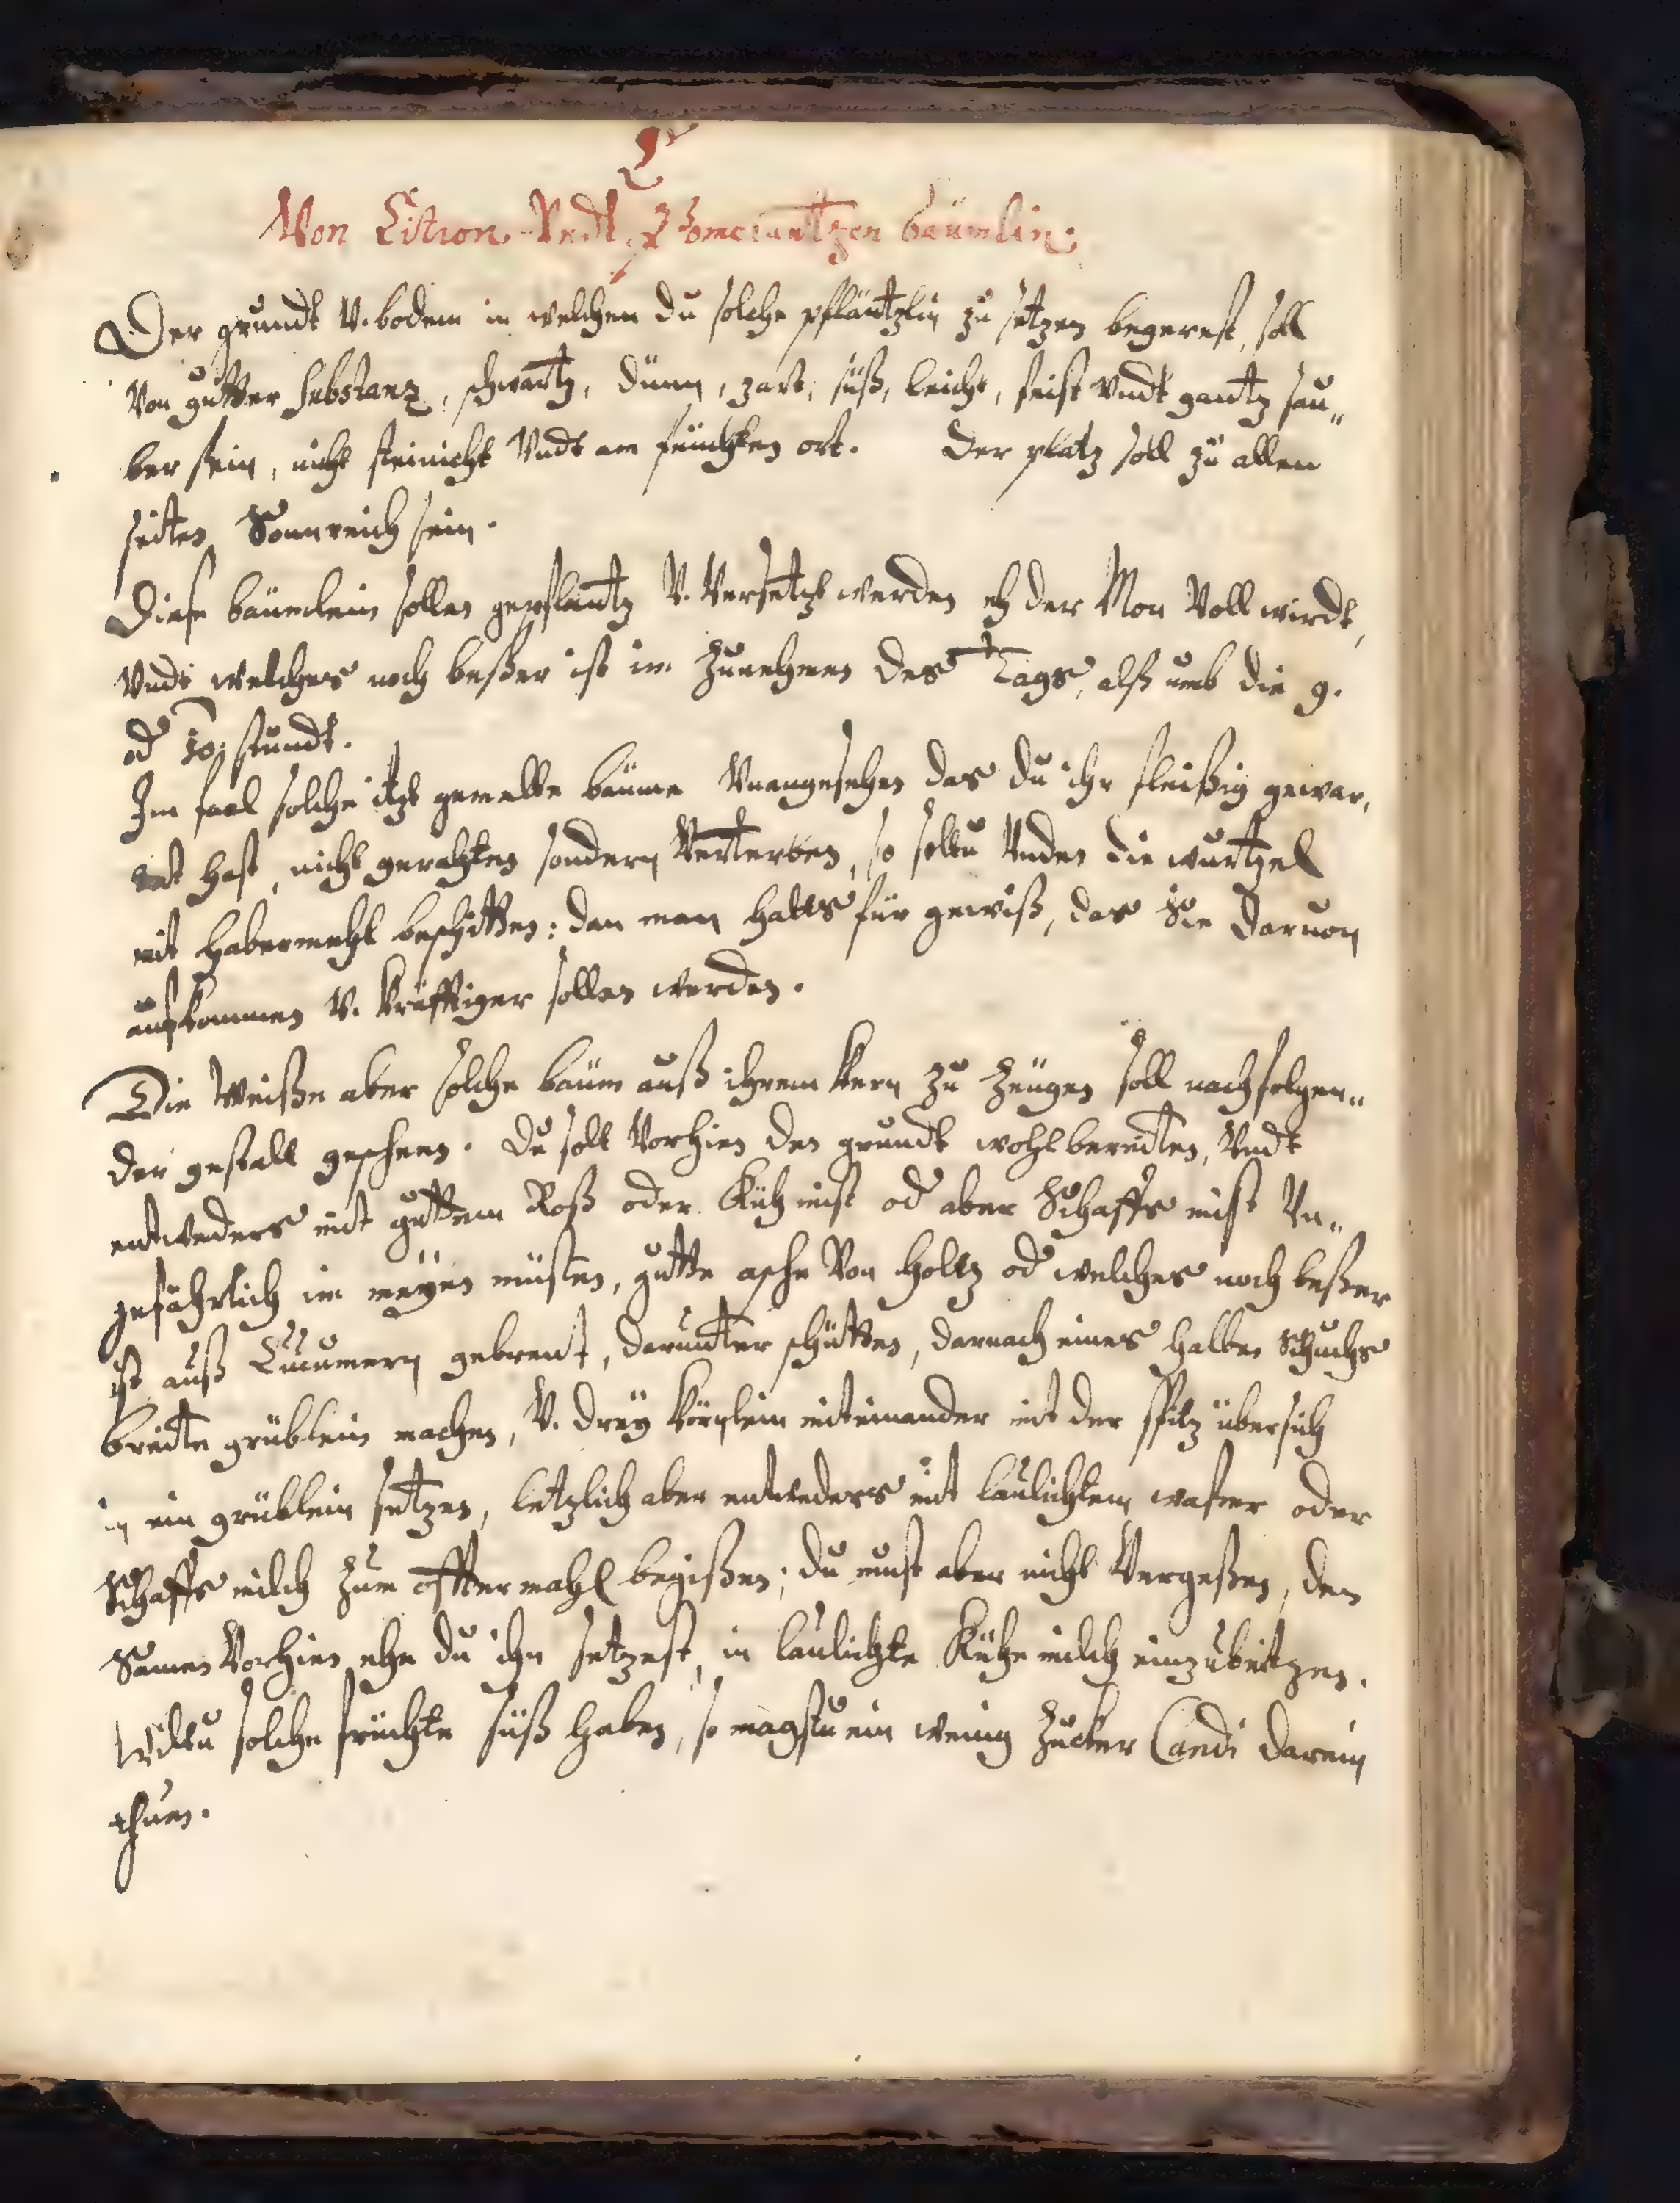 C
Von Citron. Vndt Pomerantzen bäumlin.
Der grundt V. bodem in welchen du solche pfläntzlin zu setzen begerest, soll
Von gutter Substanz, schwartz, dünn, zart, süß, leicht, feist Vndt gantz sau„
ber sein, nicht steinicht Vndt am feuchten ort. Der platz soll zu allen
seiten Sonnreich sein.
Diese bäumlein sollen gepflantz V. Versetzt werden eh der Mon Voll wirdt,
Vndt welches noch beßer ist im Zunehmen des Tags, alß umb die 9.
od 10. stundt.
Im faal solche itzt gemelte bäume Vnangesehen das du ihr fleißig gewar,
tet hast, nicht gerahten sondern Verterben, so soltu Vnden die wurtzel
mit Habermehl beschitten: dan man halts für gewiß, das Sie daruon
aufkommen V. kräfftiger sollen werden.
Die Weiße aber solche bäum auß ihrem kern zu Zeugen soll nachfolgen„
der gestalt geschehen. Du solt Vorhien den grundt wohl bereiten, Vndt
entweders mit guttem Roß oder Küh mist od aber Schaffs mist Vn„
gefährlich im meyen misten, gutte asche Von holtz od welches noch beßer
ist auß Cucumern gebrent, darunter schütten, darnach eines halben Schuchs
breite grüblein machen, V. drey körnlein miteinander mit der spitz übersich
in ein grüblein setzen, letzlich aber entweders mit laulichtem waßer oder
Schaffs milch zum offtermahl begißen; du must aber nicht Vergeßen, den
Samen Vorhien ehe du ihn setzest, in laulichte Kühe milch einzubeitzen.
Wiltu solche früchte süß haben, so magstu ein wenig Zucker Candi darein
thuen.